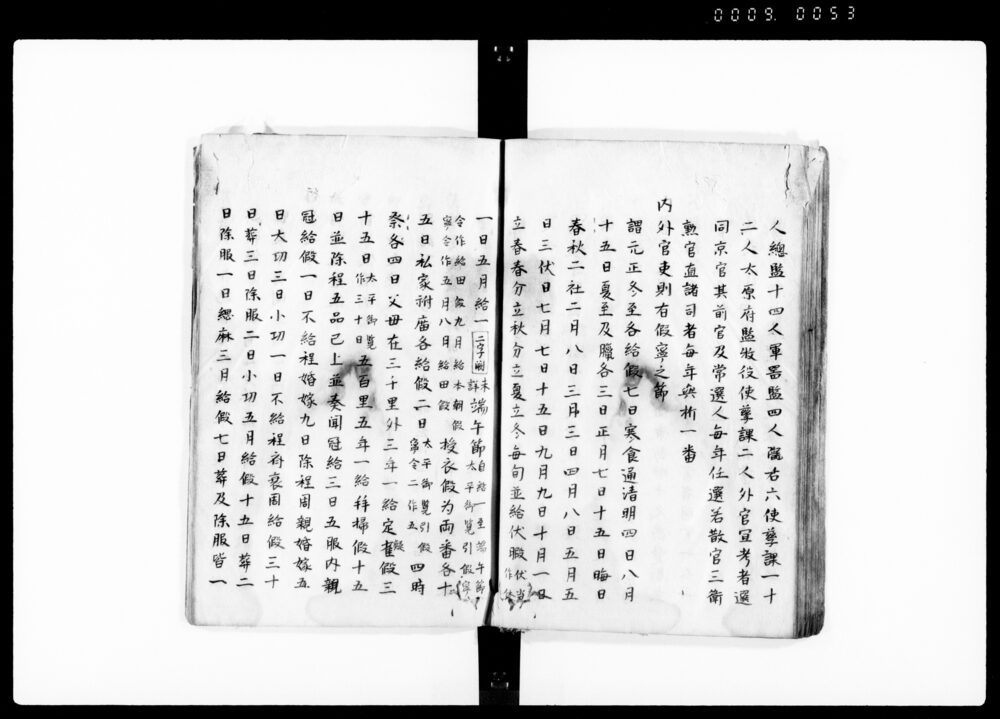 0009. 0053
人總監十四人軍器監四人隴右六使孳課一十
二人太原府監牧役使孳課二人外官宣考者選
同京官其前官及常選人每年任選若散官三衛
勲官直諸司者每年與折一番
内外官吏則有假寧之節
謂元正冬至各給假七日寒食通清明四日八月
十五日夏至及臘各三日正月七日十五日晦日
春秋二社二月八日三月三日四月八日五月五
日三伏日七月七日十五日九月九日十月一日
立春春分立秋分立夏立冬每旬並給伏暇伏當作休
一日五月給一二字闕未詳端午節自給一至端午節太平御覽引假寧
令作給田假九月給本朝假寧令作五月八月給田假授衣假为両番各十
五日私家祔廟各給假二日太平御覽引假寧令二作五四時
祭各四日父母在三千里外三年一給定省假三
十五日太平御覽作三十日五百里五年一給拜掃假十五
日並除程五品己上並奏聞冠給三日五服内親
冠給假一日不給程婚嫁九日除程周親婚嫁五
日大功三日小功一日不給程齊衰周給假三十
日葬三日除服二日小功五月給假十五日葬二
日除服一日緦麻三月給假七日葬及除服皆一